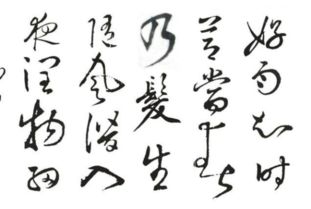 好雨知时
节當春
乃髮生
随风潜入
夜润物细